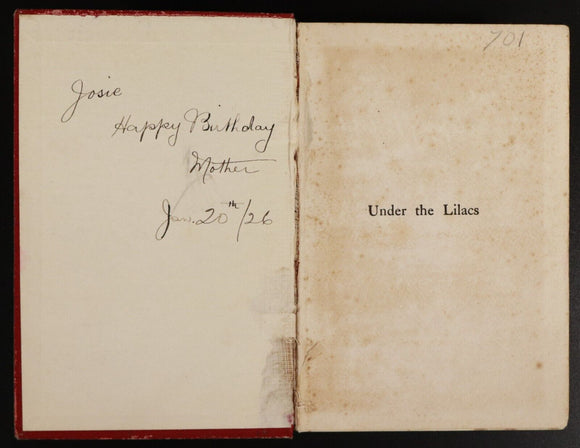 Josie
Happy Birthday
Mother
Jan. 20th/26
701
Under the Lilacs